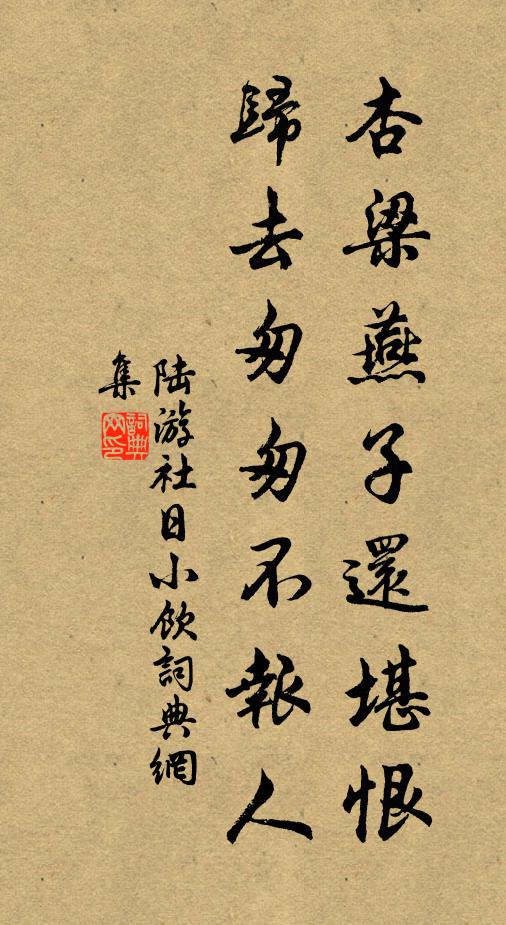 杏梁燕子還堪恨
歸去匆匆不報人
陸游社日小飲詞典網
集
詞典網印